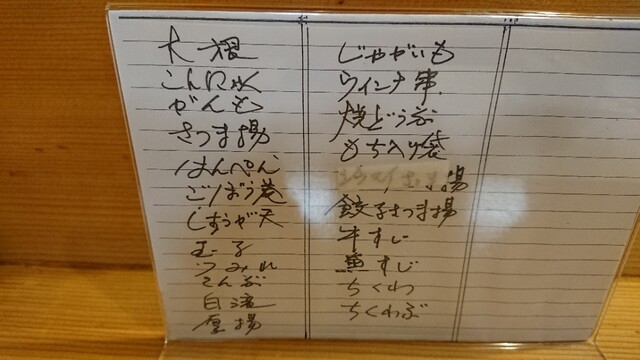 大根
こんにゃく
がんも
さつま揚
はんぺん
ごぼう巻
しょうが天
玉子
つみれ
こんぶ
白滝
厚揚
じゃがいも
ウインナ串
焼どうふ
もち入り袋
揚
餃子さつま揚
牛すじ
魚すじ
ちくわ
ちくわぶ